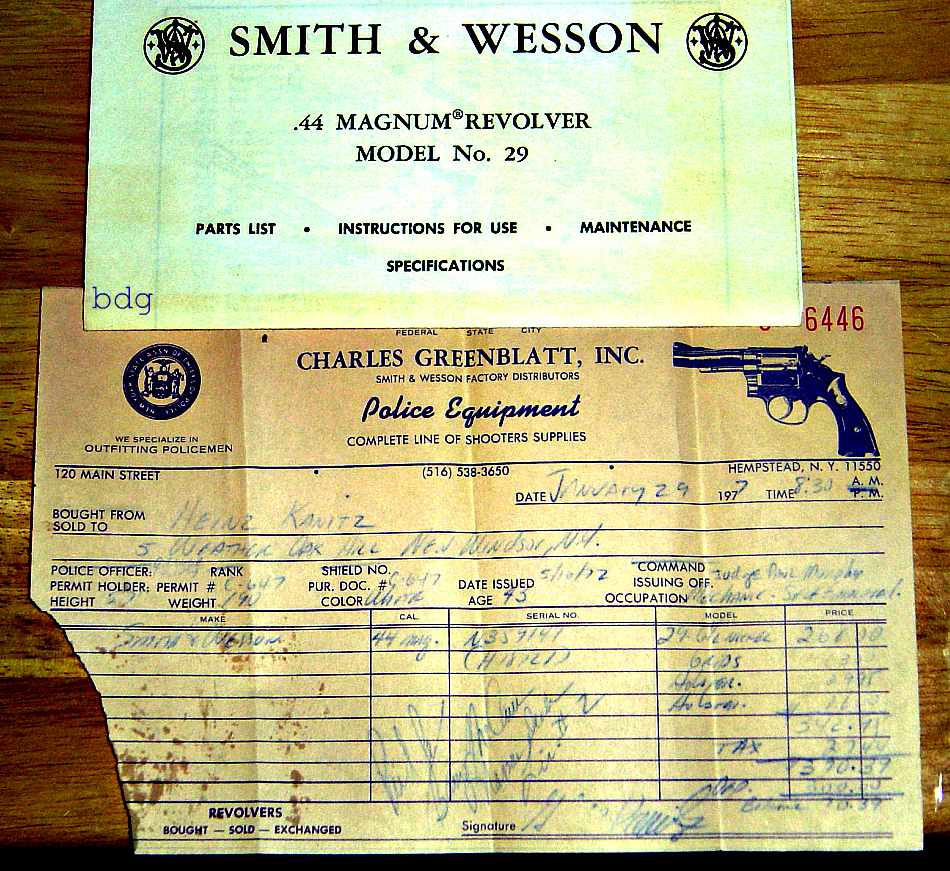 SMITH & WESSON
.44 MAGNUM® REVOLVER
MODEL No. 29
PARTS LIST • INSTRUCTIONS FOR USE • MAINTENANCE
SPECIFICATIONS
bdg
FEDERAL STATE CITY
6446
CHARLES GREENBLATT, INC.
SMITH & WESSON FACTORY DISTRIBUTORS
Police Equipment
COMPLETE LINE OF SHOOTERS SUPPLIES
WE SPECIALIZE IN
OUTFITTING POLICEMEN
120 MAIN STREET • (516) 538-3650 • HEMPSTEAD, N. Y. 11550
DATE January 29 1977 TIME 8:30 A. M.
P. M.
BOUGHT FROM
SOLD TO Heinz Kanitz
5 Weather Oak Hill New Windsor, N.Y.
POLICE OFFICER: RANK SHIELD NO. COMMAND
PERMIT HOLDER: PERMIT # C-647 PUR. DOC. # C-647 DATE ISSUED 5/16/72 ISSUING OFF. Judge
HEIGHT WEIGHT 190 COLOR White AGE 45 OCCUPATION Mechanic - Self Employed.
MAKE CAL. SERIAL NO. MODEL PRICE
Smith & Wesson 44 mag. N359141 29 6½ Nickel
Grips
Holster.
TAX
390.39
Dep.
REVOLVERS
BOUGHT — SOLD — EXCHANGED
Signature